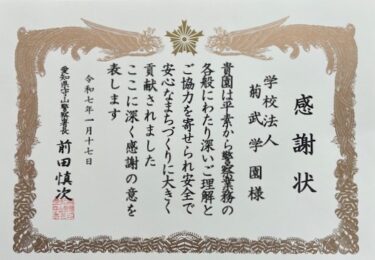 感謝状
学校法人
菊武学園様
貴園は平素から警察業務の
各般にわたり深いご理解と
ご協力を寄せられ安全で
安心なまちづくりに大きく
貢献されました
ここに深く感謝の意を
表します
令和七年一月十七日
愛知県守山警察署長
前田慎次